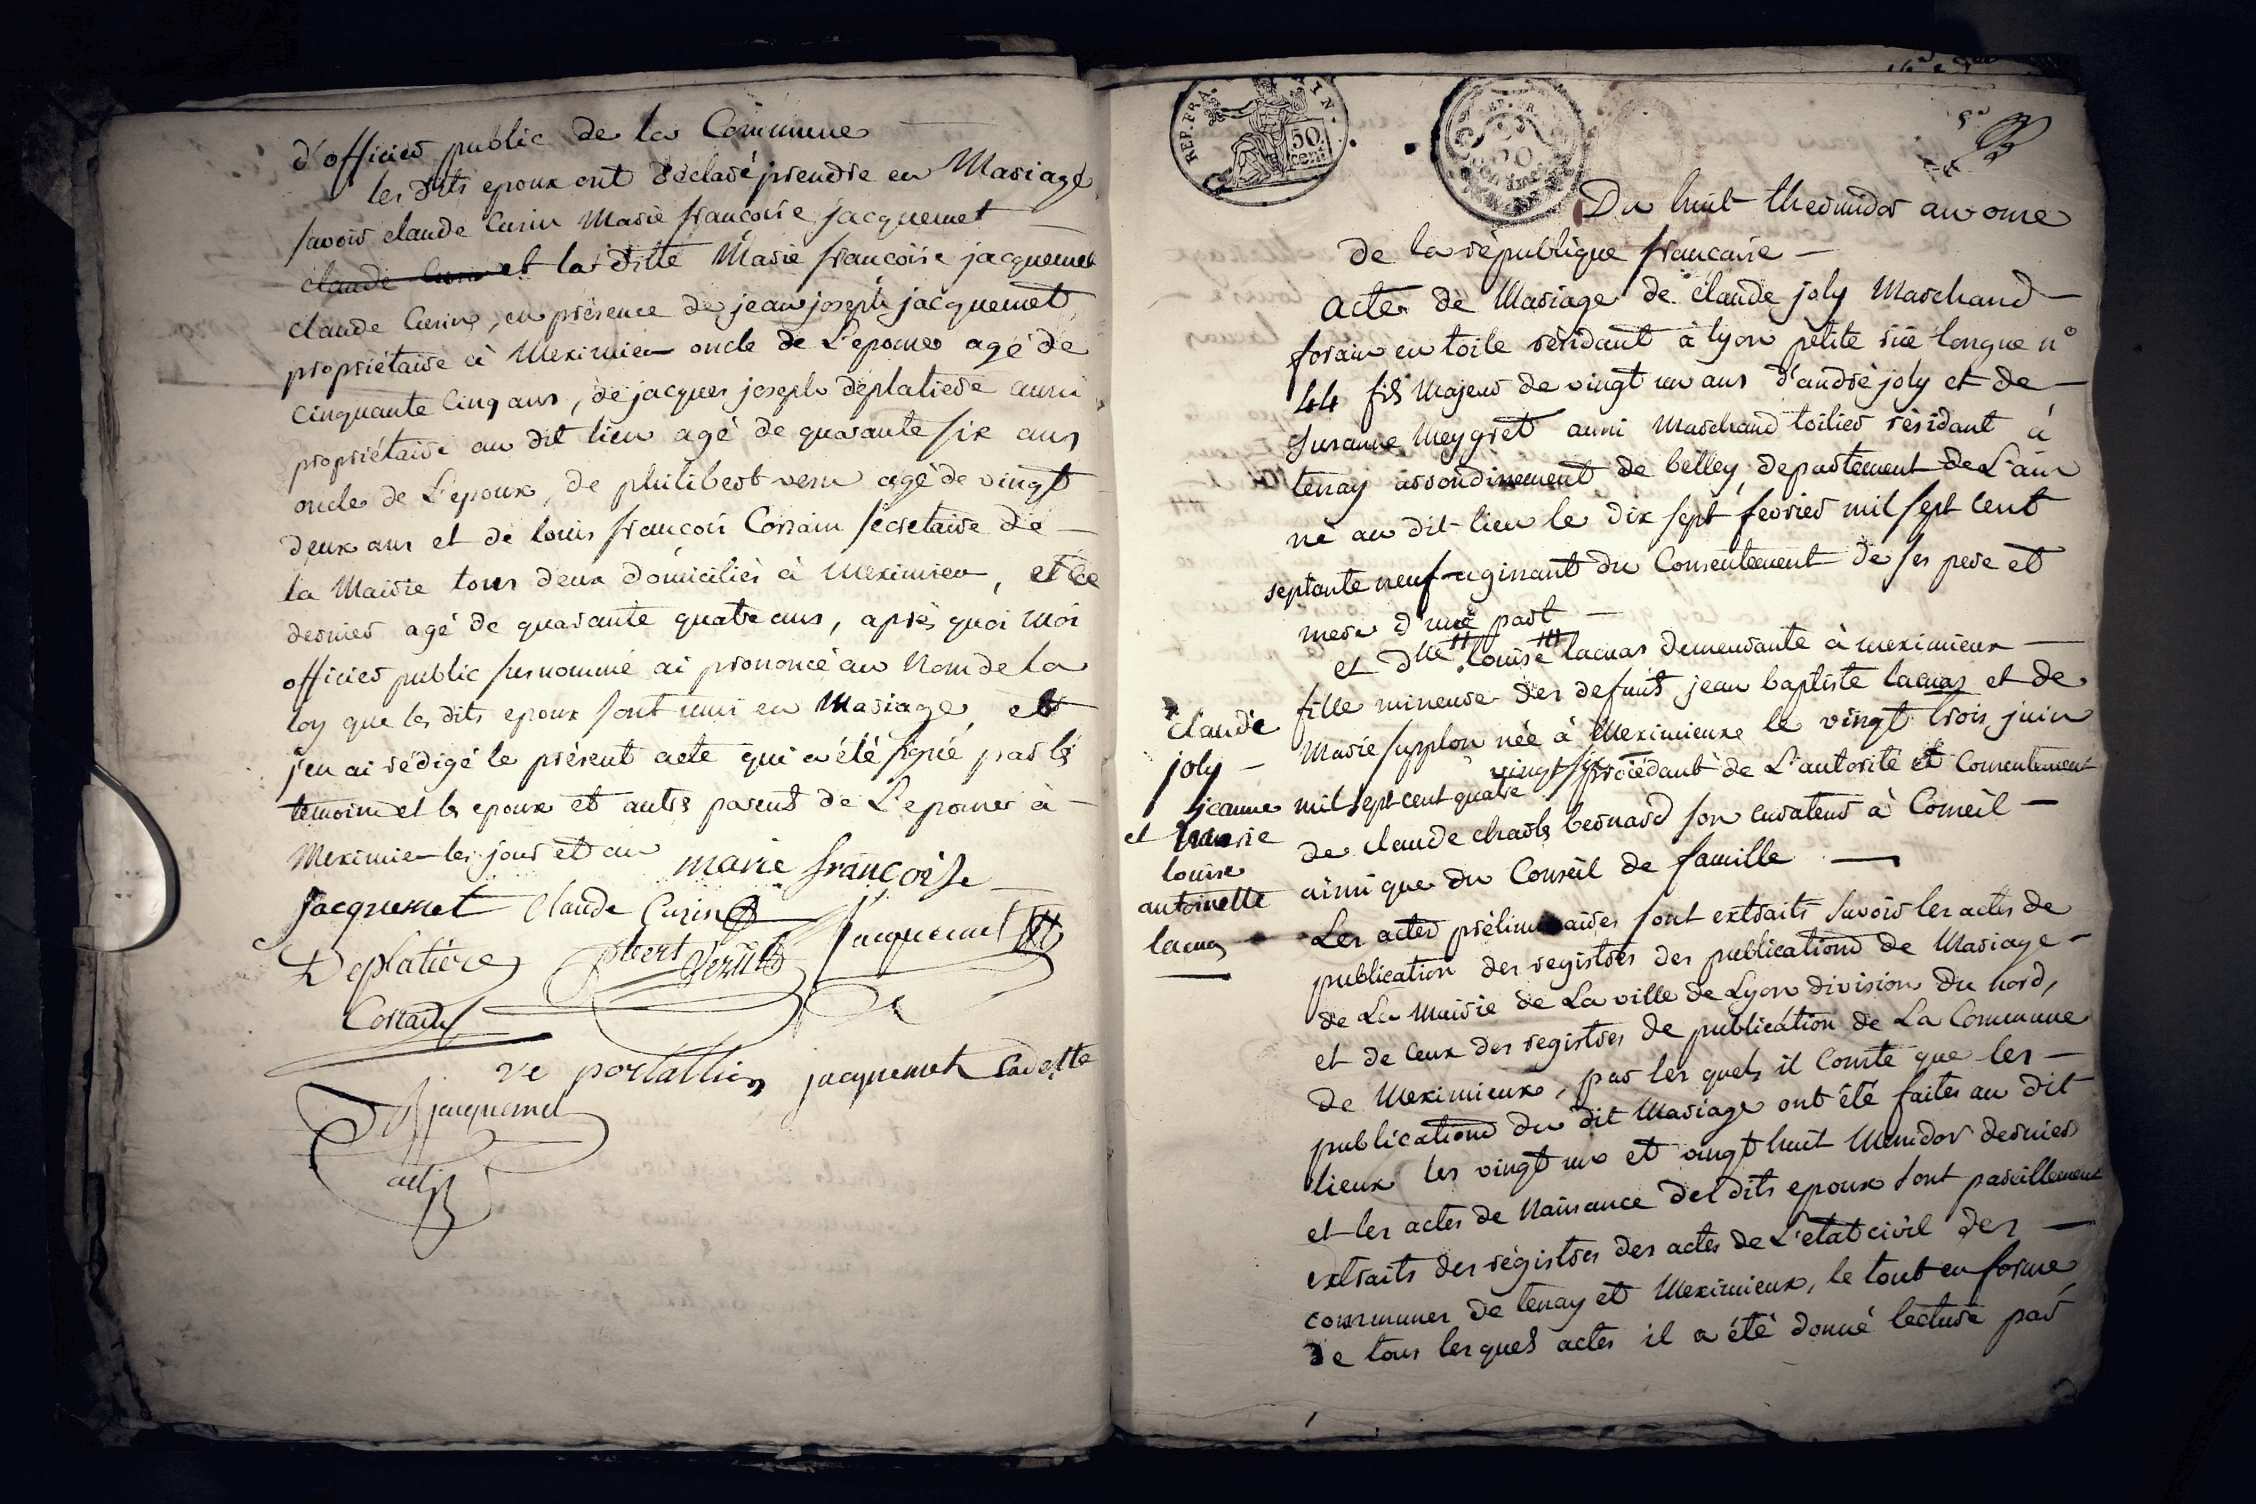 d'officier public de la Commune
les dits epoux ont déclaré prendre en Mariage
savoir claude Curin Marie françoise jacquemet
claude Curin et la ditte Marie françoise jacquemet
claude Curin, en présence de jean joseph jacquemet
propriétaire à Meximieu oncle de L'epouse agé de
cinquante cinq ans, de jacques joseph déplatiere aussi
propriétaire au dit lieu agé de quarante six ans
oncle de L'epoux, de philibert venu agé de vingt
deux ans et de louis françois Cossain sécretaire de
la Mairie tous deux domiciliés à Meximieu, et ce
dernier agé de quarante quatre ans, après quoi Moi
officier public susnommé ai prononcé au Nom de la
loy que les dits epoux sont unis en Mariage, et
j'en ai rédigé le présent acte qui a été signé par les
temoins et les epoux et autres parens de L'epouse à
Meximieu les jour et an
marie françoise
jacquemet Claude Curin jacquemet
Deplatière
Cossain
ve portallier jacquemet Cadette
jacquemet
REP. FRA.
50 cent.
5e
Du huit thermidor an onze
de la république francaise
acte de Mariage de claude joly Marchand
forain en toile résidant à lyon petite rüe longue n°
44 fils Majeur de vingt un ans d'andré joly et de
Susanne Meygret aussi Marchand toilier résidant à
tenay arrondissement de belley, departement de L'ain
né au dit lieu le dix sept fevrier mil sept cent
septante neuf agissant du Consentement de ses pere et
mere d'une part
et dlle louise lacuas demeurante à meximieux
fille mineure des defunts jean baptiste lacuas et de
Marie supplon née à Meximieux le vingt trois juin
mil sept cent quatre vingt six procédant de L'autorité et Consentement
de claude charles bernard son curateur à Conseil
ainsi que du Conseil de famille
claude
joly
et jeanne
marie
louise
antoinette
lacuas
Les actes préliminaires sont extraits savoir les actes de
publication des registres des publications de Mariage
de La Mairie de La ville de Lyon division du nord,
et de ceux des registres de publication de La Commune
de Meximieux, par les quels il Conste que les
publications du dit Mariage ont été faites au dit
lieux les vingt un et vingt huit Messidor dernier
et les actes de Naissance des dits epoux sont pareillement
extraits des régistres des actes de L'etat civil des
communes de tenay et Meximieux, le tout en forme,
de tous lesquels actes il a été donné lecture par